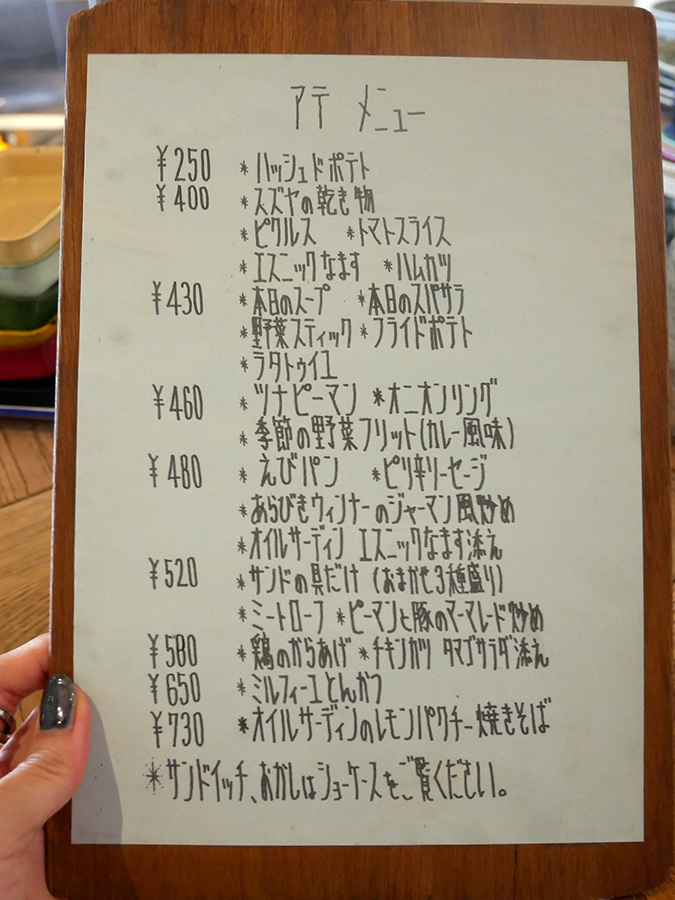 アテ メニュー
¥250 *ハッシュドポテト
¥400 *スズヤの乾き物
*ピクルス *トマトスライス
*エスニックなます *ハムカツ
¥430 *本日のスープ *本日のスパサラ
*野菜スティック *フライドポテト
*ラタトゥイユ
¥460 *ツナピーマン *オニオンリング
*季節の野菜フリット(カレー風味)
¥480 *えびパン *ピリ辛ソーセージ
*あらびきウィンナーのジャーマン風炒め
*オイルサーディン エスニックなます添え
¥520 *サンドの具だけ(おまかせ3種盛り)
*ミートローフ *ピーマンと豚のマーマレード炒め
¥580 *鶏のからあげ *チキンカツ タマゴサラダ添え
¥650 *ミルフィーユとんかつ
¥730 *オイルサーディンのレモンパクチー焼きそば
*サンドイッチ、おかしはショーケースをご覧ください。